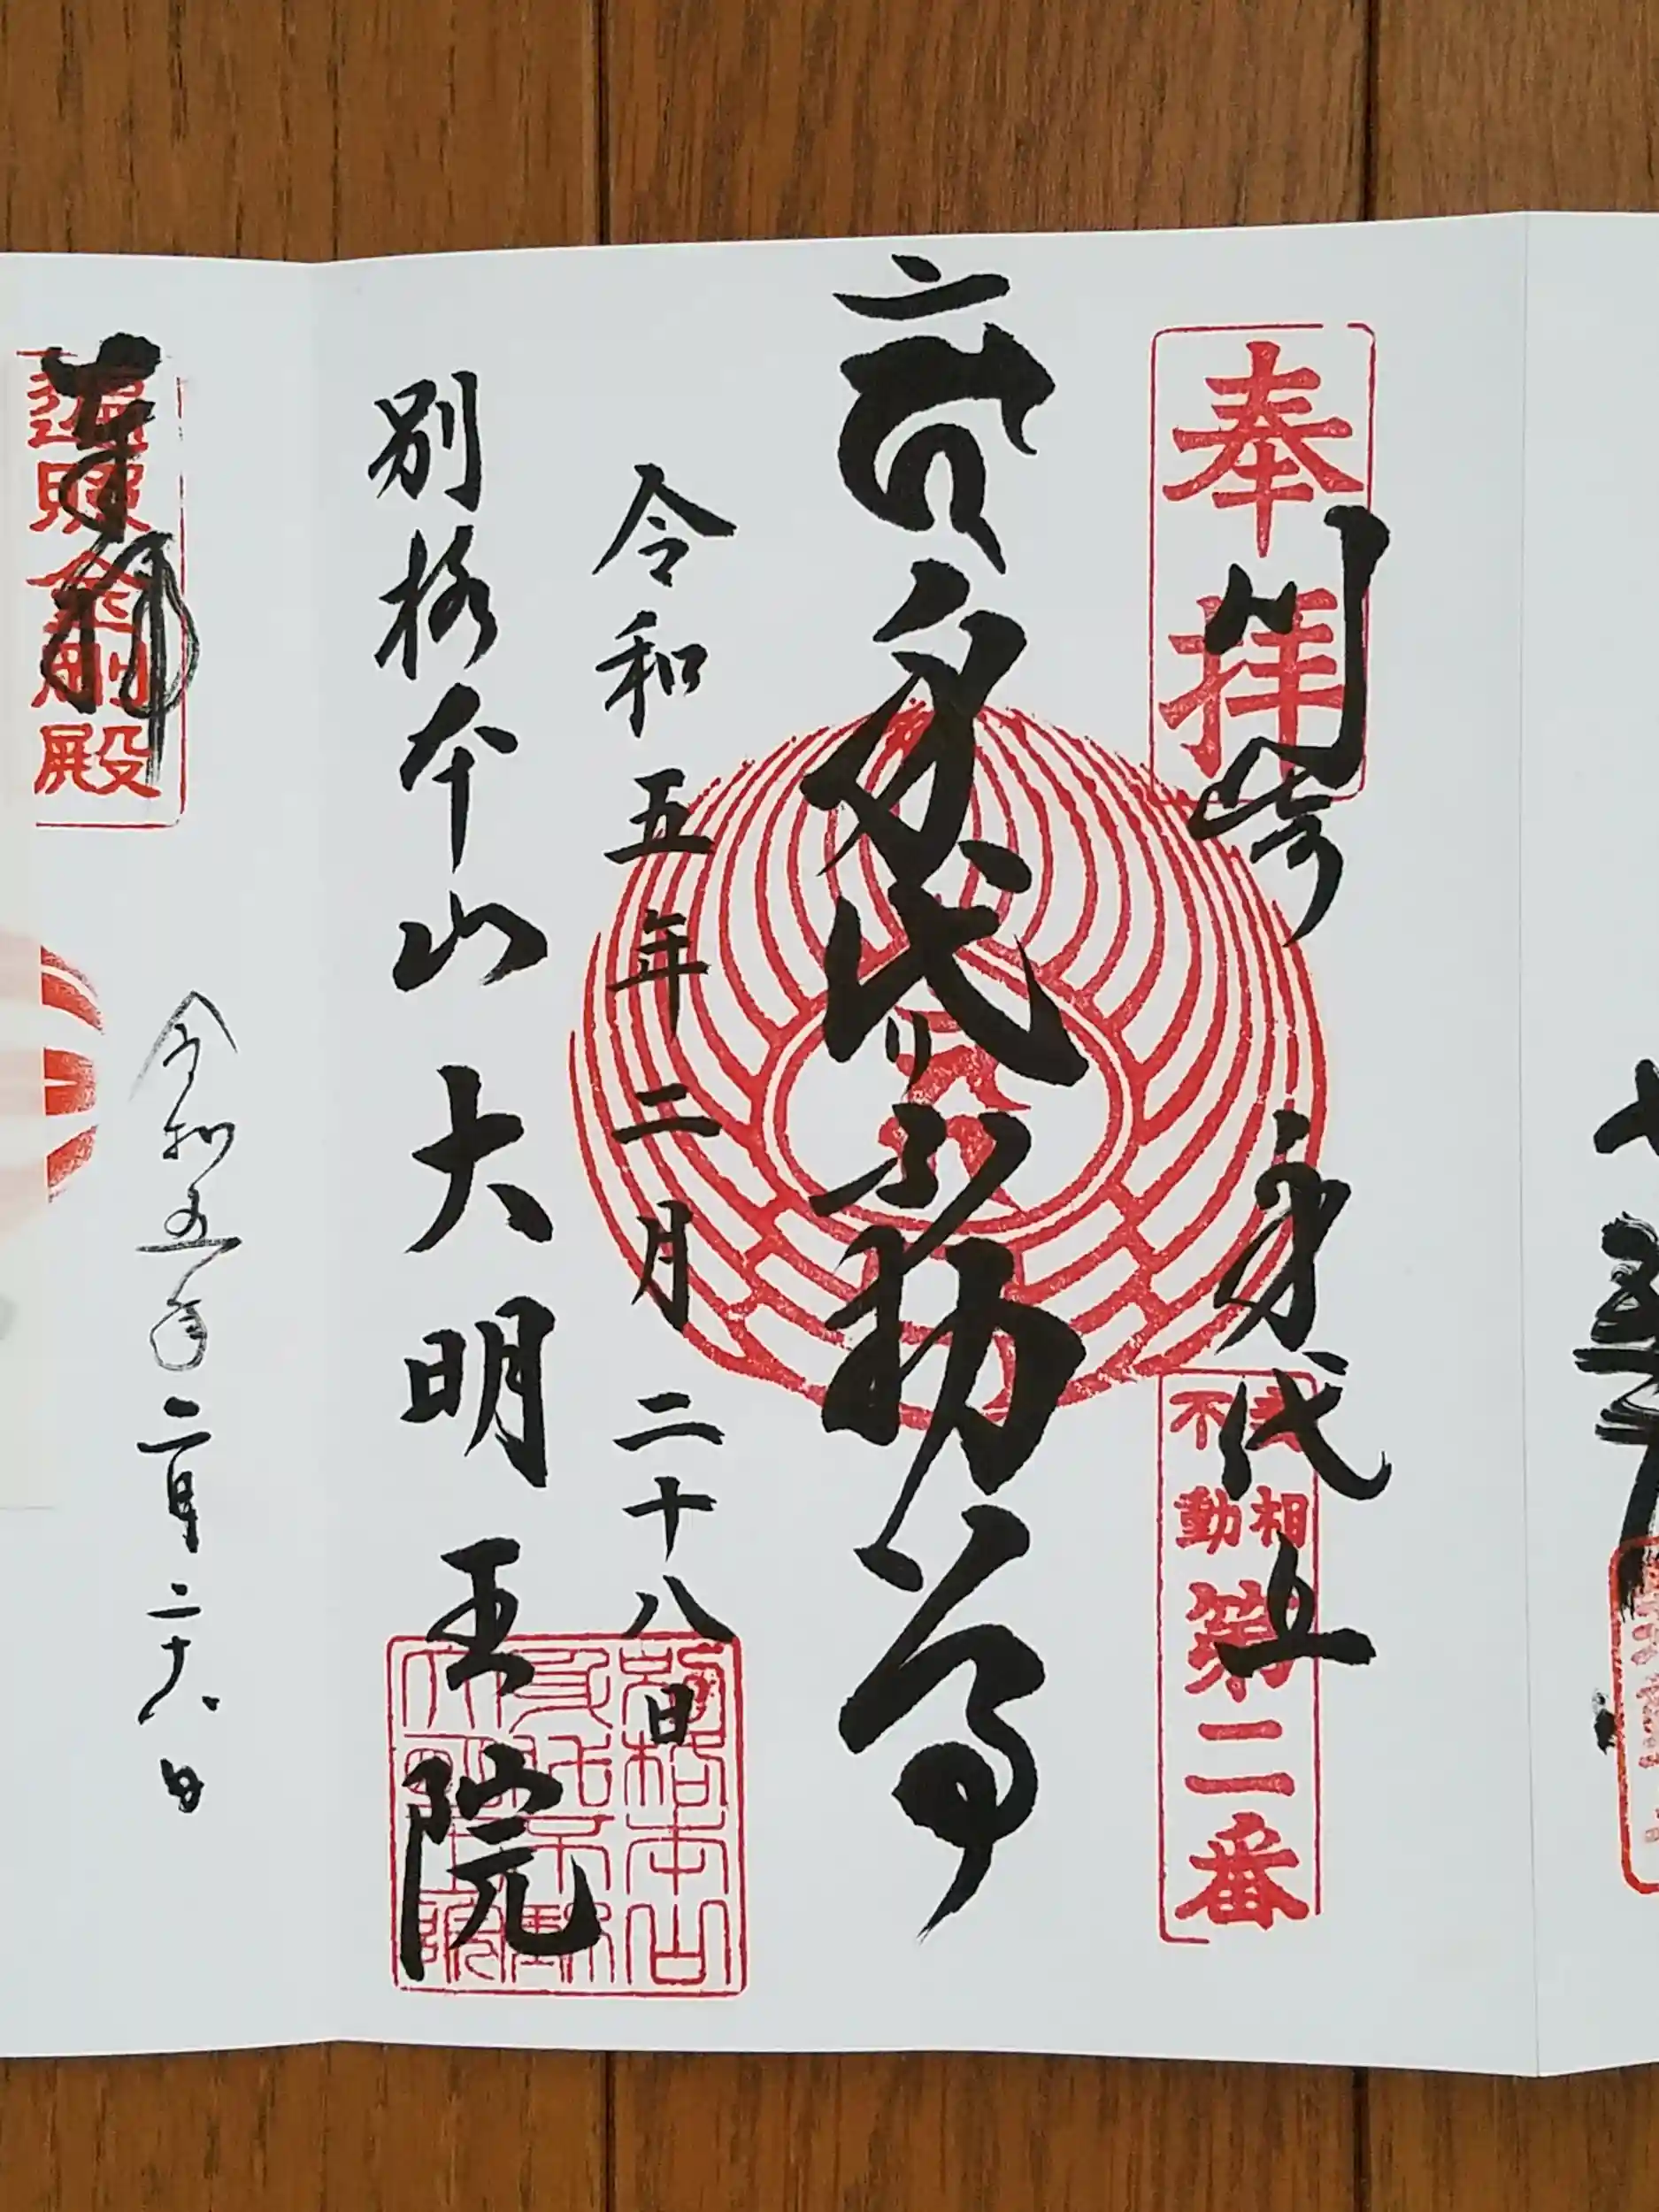 奉拝
川崎 身代立
武相不動
第二番
身代り不動尊
令和五年二月二十八日
別格本山 大明王院
別格本山
身代不動
大明王院
遍照金剛殿
奉拝
令和五年二月二十八日